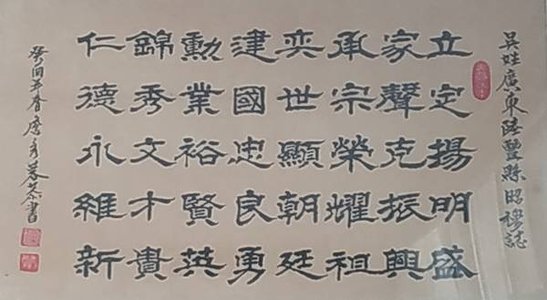 吳姓廣東陸豐縣昭穆誌
立定揚明盛
家聲克振興
承宗榮耀祖
奕世顯朝廷
建國忠良勇
勳業裕賢英
錦秀文才貴
仁德永維新
癸酉年春書